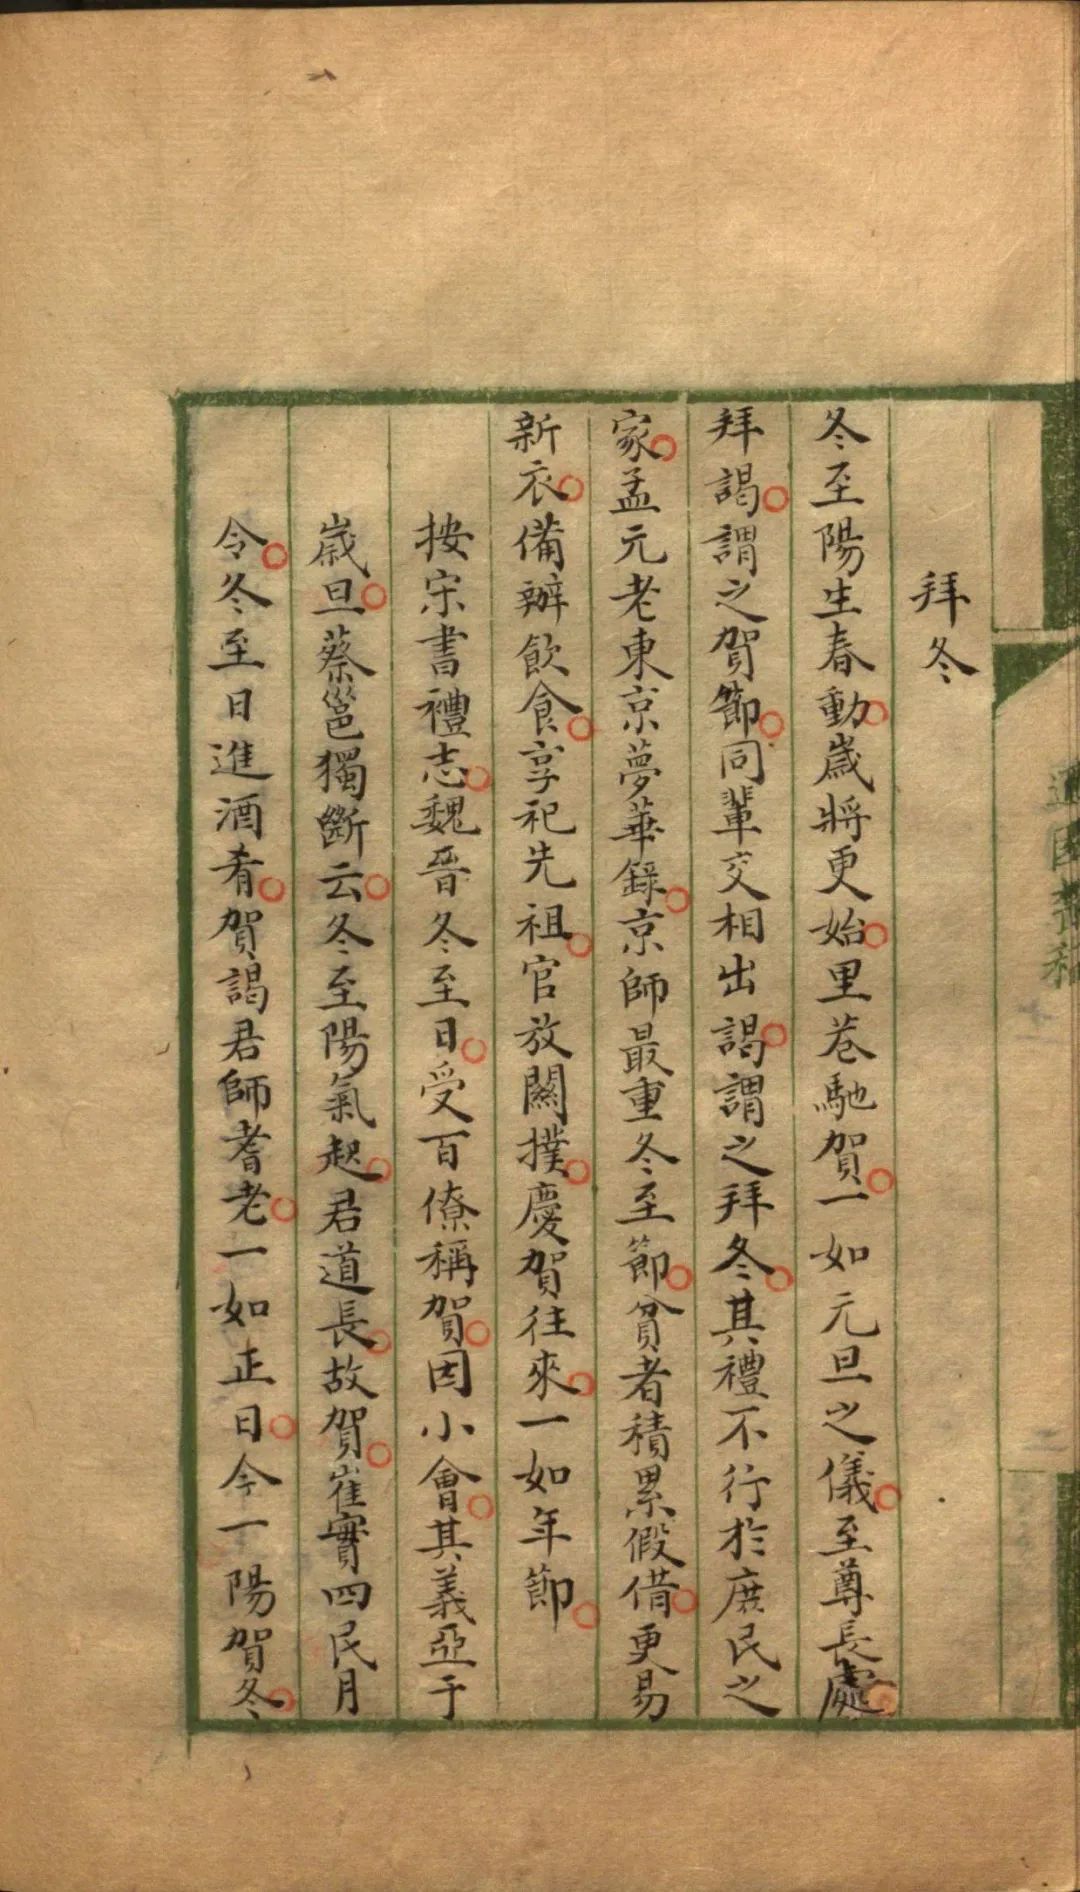 拜冬
冬至陽生春動歲將更始里巷馳賀一如元旦之儀至尊長處
拜謁謂之賀節同輩交相出謁謂之拜冬其禮不行於庶民之
家孟元老東京夢華錄京師最重冬至節貧者積累假借更易
新衣備辦飲食享祀先祖官放關撲慶賀往來一如年節
按宋書禮志魏晉冬至日受百僚稱賀因小會其義亞于
歲旦蔡邕獨斷云冬至陽氣起君道長故賀崔實四民月
令冬至日進酒肴賀謁君師耆老一如正日今一陽賀冬